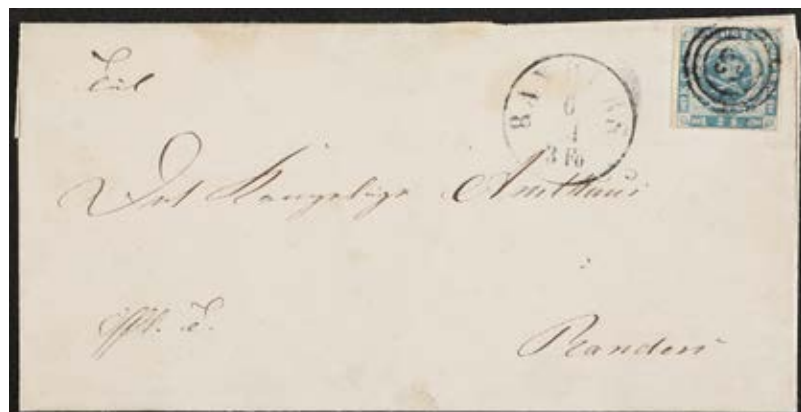 Til
RANDERS
6
1
3 Fo
53
Det Kongelige Amthuus
i
Randers